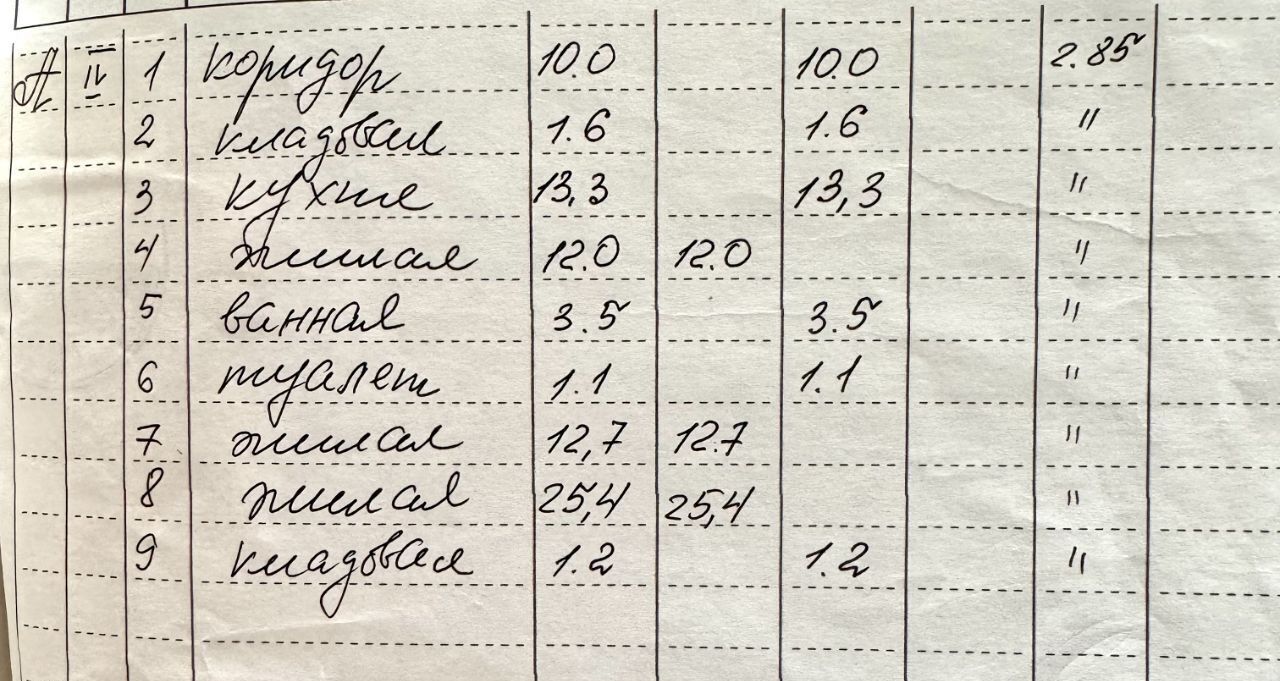 А IV 1 коридор 10.0 10.0 2.85
2 кладовая 1.6 1.6 "
3 кухня 13,3 13,3 "
4 жилая 12.0 12.0 "
5 ванная 3.5 3.5 "
6 туалет 1.1 1.1 "
7 жилая 12,7 12.7 "
8 жилая 25,4 25,4 "
9 кладовая 1.2 1.2 "